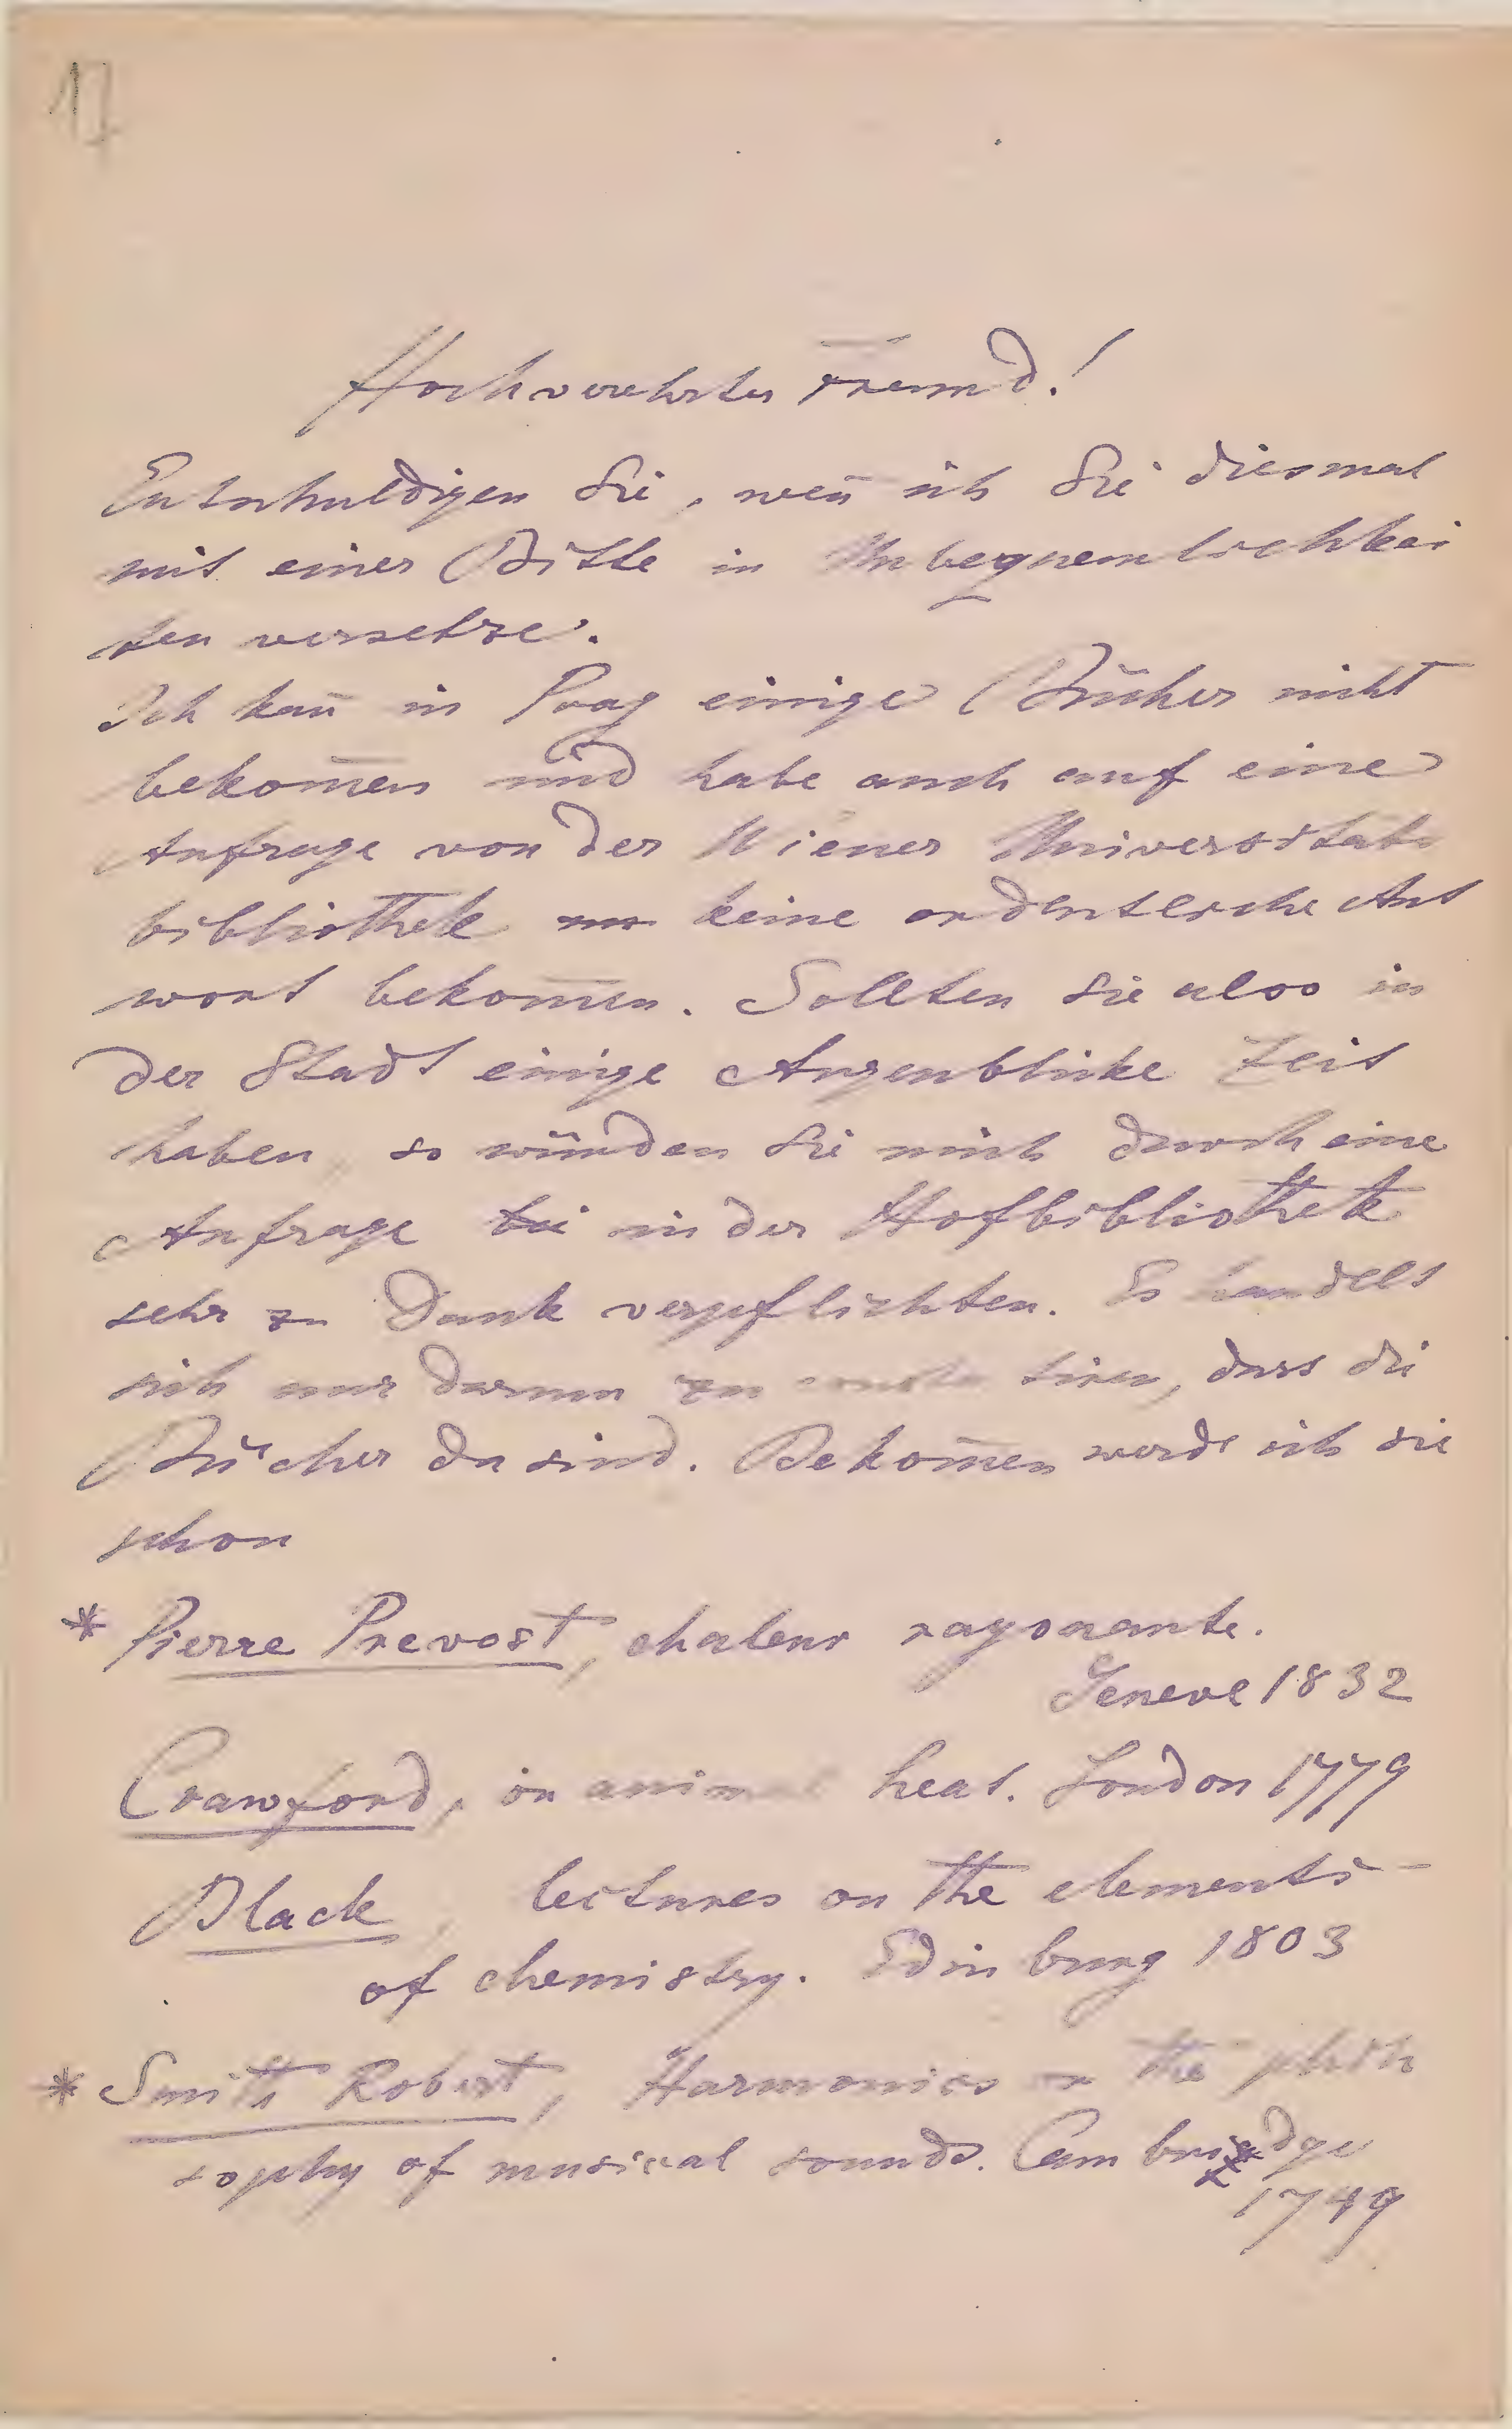 17
Hochverehrter Freund!
Entschuldigen Sie, wen̄ ich Sie diesmal
mit einer Bitte in Unbequemlichkei
ten versetze.
Ich kan̄ in Prag einige Bücher nicht
bekom̄en und habe auch auf eine
Anfrage von der Wiener Universitäts
bibliothek keine ordentliche Ant
wort bekom̄en. Sollten Sie also in
der Stadt einige Augenblicke Zeit
haben, so würden Sie mich durch eine
Anfrage bei in der Hofbibliothek
sehr zu Dank verpflichten. Es handelt
sich nur darum zu constatiren, dass die
Bücher da sind. Bekom̄en werde ich sie
schon
* Pierre Prevost, chaleur rayonante.
Geneve 1832
Crawford, on animal heat. London 1779
Black, lectures on the elements
of chemistry. Edinburg 1803
* Smith Robert, Harmonics or the philo
sophy of musical sounds. Cambridge
1749